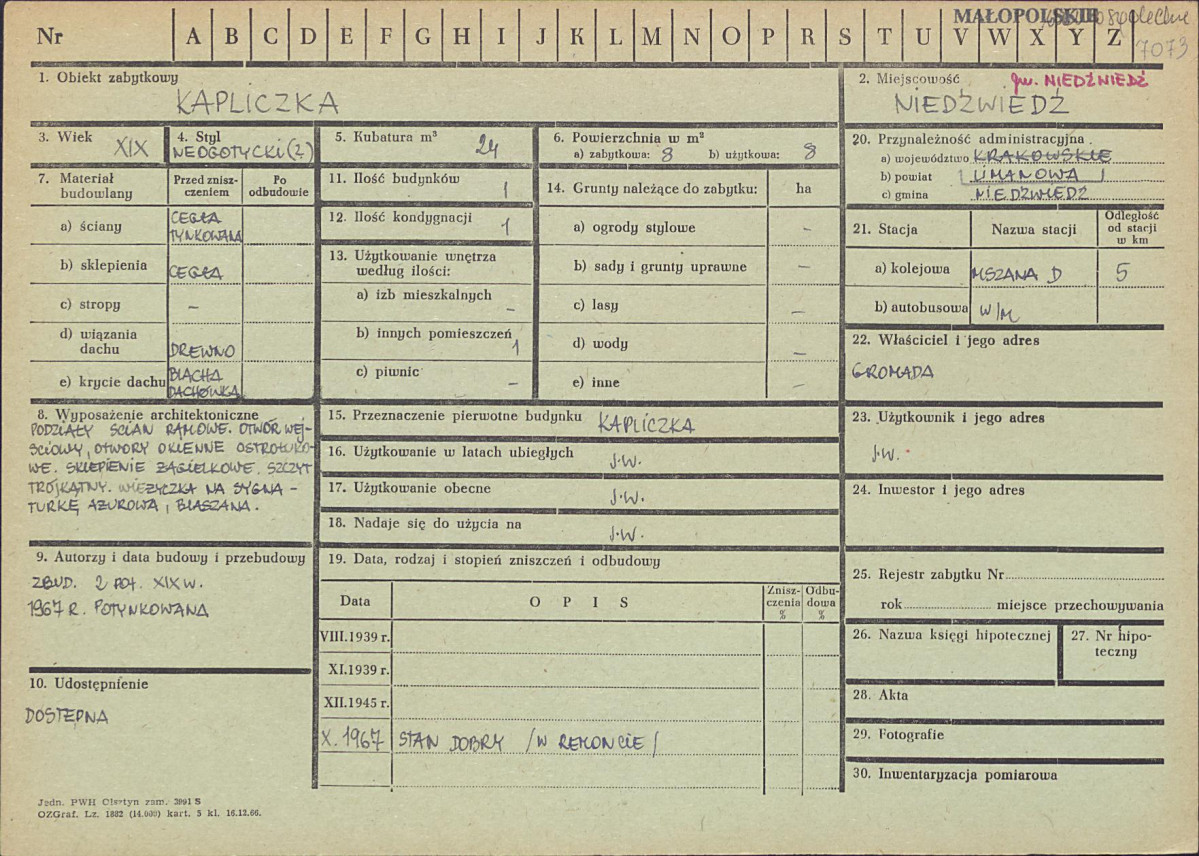 MAŁOPOLSKIE
7073
Nr A B C D E F G H I J K L M N O P R S T U V W X Y Z
1. Obiekt zabytkowy
KAPLICZKA
2. Miejscowość gw. NIEDŹNIEDŹ
NIEDŹWIEDŹ
3. Wiek XIX
4. Styl
NEOGOTYCKI (?)
5. Kubatura m³ 24
6. Powierzchnia w m²
a) zabytkowa: 8 b) użytkowa: 8
7. Materiał budowlany
Przed zniszczeniem
Po odbudowie
a) ściany CEGŁA TYNKOWANA
b) sklepienia CEGŁA
c) stropy –
d) wiązania dachu DREWNO
e) krycie dachu BLACHA DACHÓWKA
8. Wyposażenie architektoniczne
PODZIAŁY ŚCIAN RAMOWE. OTWÓR WEJ-
ŚCIOWY, OTWORY OKIENNE OSTROŁUKO-
WE. SKLEPIENIE ŻAGIELKOWE. SZCZYT
TRÓJKĄTNY. WIEŻYCZKA NA SYGNA-
TURKĘ AŻUROWA, BLASZANA.
9. Autorzy i data budowy i przebudowy
ZBUD. 2 POŁ. XIX W.
1967 R. POTYNKOWANA
10. Udostępnienie
DOSTĘPNA
11. Ilość budynków 1
12. Ilość kondygnacji 1
13. Użytkowanie wnętrza
według ilości:
a) izb mieszkalnych –
b) innych pomieszczeń 1
c) piwnic –
14. Grunty należące do zabytku: ha
a) ogrody stylowe –
b) sady i grunty uprawne –
c) lasy –
d) wody –
e) inne –
15. Przeznaczenie pierwotne budynku KAPLICZKA
16. Użytkowanie w latach ubiegłych J.W.
17. Użytkowanie obecne J.W.
18. Nadaje się do użycia na J.W.
19. Data, rodzaj i stopień zniszczeń i odbudowy
Data OPIS Zniszczenia % Odbudowa %
VIII.1939 r.
XI.1939 r.
XII.1945 r.
X. 1967 STAN DOBRY /W REMONCIE/
20. Przynależność administracyjna
a) województwo KRAKOWSKIE
b) powiat LIMANOWA
c) gmina NIEDŹWIEDŹ
21. Stacja Nazwa stacji Odległość od stacji w km
a) kolejowa MSZANA D 5
b) autobusowa W/M
22. Właściciel i jego adres
GROMADA
23. Użytkownik i jego adres
J.W.
24. Inwestor i jego adres
25. Rejestr zabytku Nr
rok miejsce przechowywania
26. Nazwa księgi hipotecznej
27. Nr hipo-
teczny
28. Akta
29. Fotografie
30. Inwentaryzacja pomiarowa
Jedn. PWH Olsztyn zam. 3991 S
OZGraf. Lz. 1882 (14.000) kart. 5 kl. 16.12.66.